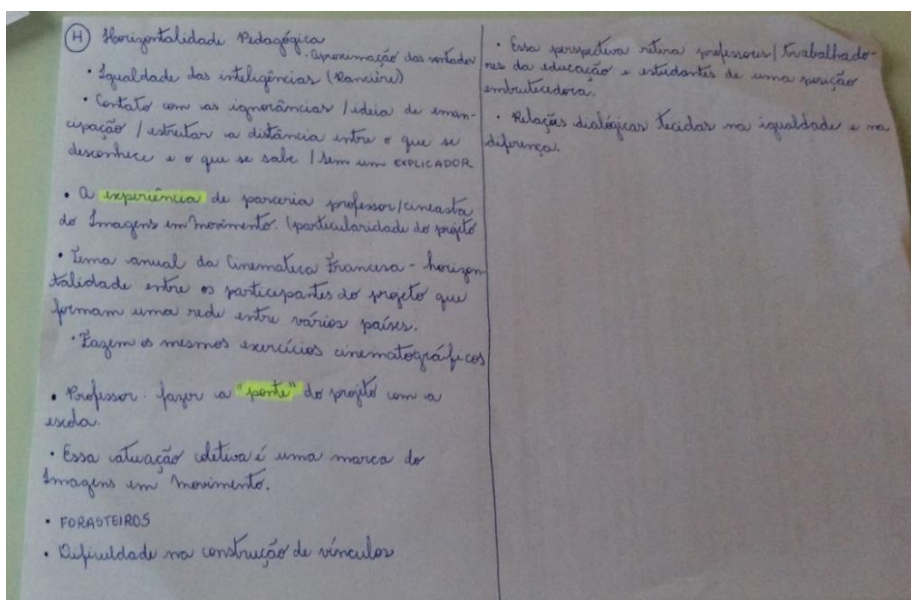 (H) Horizontalidade Pedagógica
· Aproximação das vontades
· Igualdade das inteligências (Rancière)
· Contato com as ignorâncias / ideia de eman-
cipação / estreitar a distância entre o que se
desconhece e o que se sabe / sem um EXPLICADOR
· A experiência de parceria professor/cineasta
do Imagens em Movimento. (particularidade do projeto
· Tema anual da Cinemateca Francesa - horizon-
talidade entre os participantes do projeto que
formam uma rede entre vários países.
· Fazem os mesmos exercícios cinematográficos
· Professor fazer a "ponte" do projeto com a
escola.
· Essa atuação coletiva é uma marca do
Imagens em Movimento.
· FORASTEIROS
· Dificuldade na construção de vínculos
· Essa perspectiva retira professores/trabalhado-
res da educação e estudantes de uma posição
embrutecedora.
· Relações dialógicas tecidas na igualdade e na
diferença.